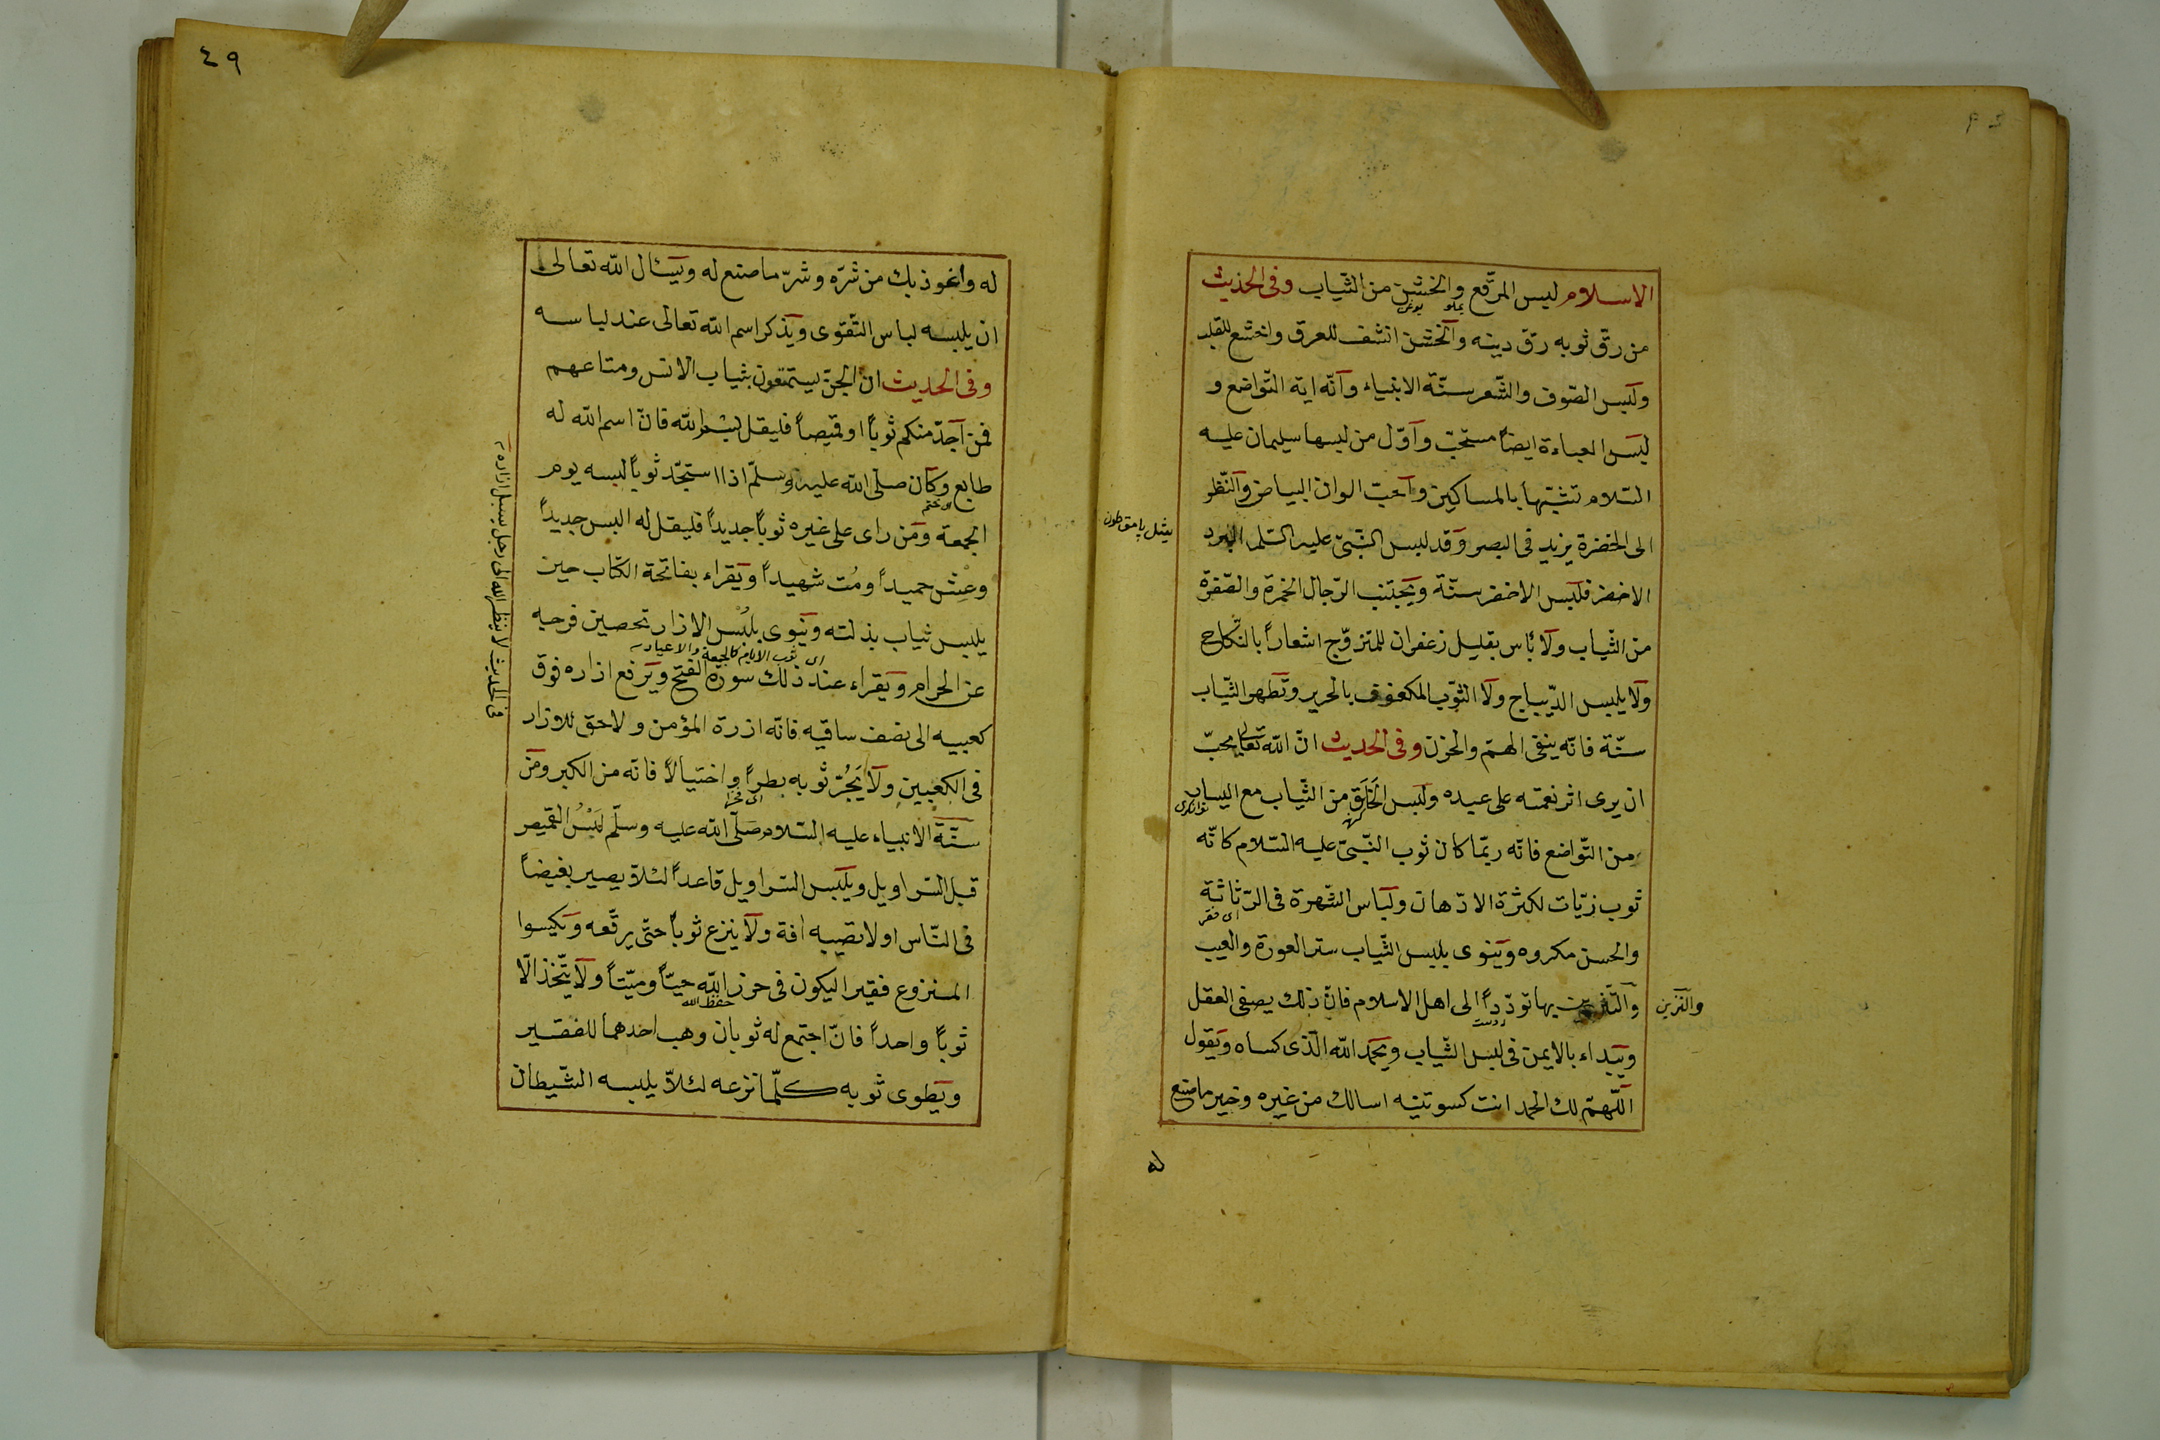 الاسلام لبس المرقّع والخشن من الثّياب وفى الحديث
من رقّ ثوبه رقّ دينه والخشن انشف للعرق واخشع للقلب
ولبس الصّوف والشّعر سنّة الانبياء وانّه اية التّواضع و
لبس العباءة ايضاً مستحبّ واوّل من لبسها سليمان عليه
السّلام تشبّهاً بالمساكين واحبّ الوان البياض والنّظر
الى الخضرة يزيد فى البصر وقد لبس النّبىّ عليه السّلم البرد
الاخضر فلبس الاخضر سنّة ويجتنب الرّجال الحمرة والصّفرة
من الثّياب ولا بأس بقليل زعفران للمتزوّج اشعاراً بالنّكاح
ولا يلبس الدّيباج ولا الثّوب المكفوف بالحرير وتطهير الثّياب
سنّة فانّه ينفى الهمّ والحزن وفى الحديث انّ الله تعالى يحبّ
ان يرى اثر نعمته على عبده ولبس الخَلَق من الثّياب مع اليسار
من التّواضع فانّه ربّما كان ثوب النّبىّ عليه السّلام كانّه
ثوب زيّات لكثرة الادّهان ولباس الشّهرة فى الرّثاثة
اى فقر
والحسن مكروه وينوى بلبس الثّياب ستر العورة والعيب
والتّزيين بها تودّداً الى اهل الاسلام فانّ ذلك يصفى العقل
والتزين
دوست
ويبداء بالايمن فى لبس الثّياب ويحمد الله الّذى كساه ويقول
اللّهمّ لك الحمد انت كسوتنيه اسالك من غيره وخير ما صنع
له
٤٩
له واعوذ بك من شرّه وشرّ ما صنع له ويسئال الله تعالى
ان يلبسه لباس التّقوى ويذكر اسم الله تعالى عند لباسه
وفى الحديث ان الجنّ يستمتعون بثياب الانس ومتاعهم
فمن اجدّ منكم ثوباً او قميصاً فليقل بسم الله فانّ اسم الله له
طابع وكان صلّى الله عليه وسلّم اذا استجدّ ثوباً لبسه يوم
الجمعة ومن راى على غيره ثوباً جديداً فليقل له البس جديداً
وعش حميداً ومُت شهيداً ويقراء بفاتحة الكتاب حين
يلبس ثياب بذلته وينوى بلبس الازار تحصين فرجه
اى ثوب الايام كالجمعة والاعياد
عن الحرام ويقراء عند ذلك سورة الفتح ويرفع ازاره فوق
كعبيه الى نصف ساقيه فانّه ازرة المؤمن ولا حقّ للازار
فى الكعبين ولا يَجُرّ ثوبه بطراً واختيالاً فانّه من الكبر ومن
اى فخراً
سنّة الانبياء عليه السّلام صلّى الله عليه وسلّم لبْسُ القميص
قبل السّراويل ويلبس السّراويل قاعداً لئلاّ يصير بغيضاً
فى النّاس او لا تصيبه افة ولا ينزع ثوباً حتّى يرقّعه ويكسوا
المنزوع فقيرا ليكون فى حرز الله حيّاً وميّتاً ولا يتّخذ الّا
حفظ الله
ثوباً واحداً فانّ اجتمع له ثوبان وهب احدهما للفقير
ويطوى ثوبه كلّما نزعه لئلاّ يلبسه الشّيطان
فى الحديث لا ينظر الله الى رجل يسبل ازاره